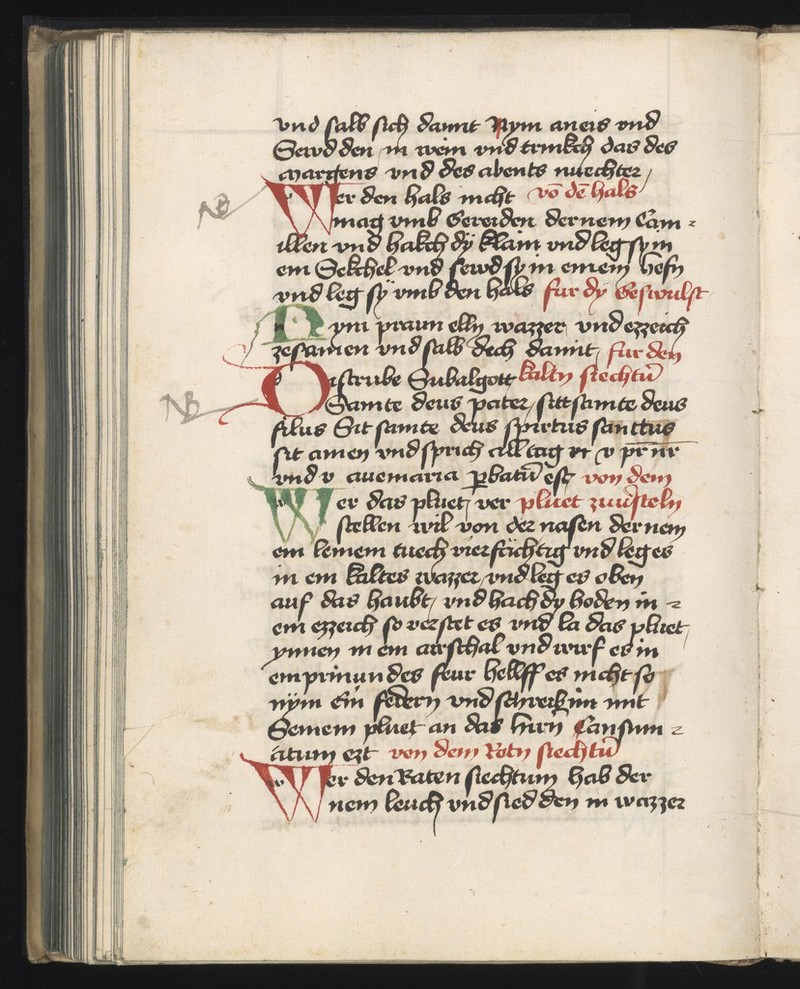 vnd salb sich damit Nym aneis vnd
Sewd den in wein vnd trinkch das des
margens vnd des abents nuechter
Wer den hals nicht vō dē hals
NB
mag vmb Gereiden der nem Cam-
illen vnd hakch dÿ klain vnd leg sy in
ein Sekchel vnd sewd sy in einem hefn
vnd leg sÿ vmb den hals fur dy Geswulst
Nym praun elln wazzer vnd ezzeich
zesamen vnd salb dich damit fur den
Ostrube Subalgott kaltn siechtū
NB
Samte deus pater sitt samte deus
filus Sit samte deus spirtus santtus
sit amen vnd sprich all tag v pr̄ nr̄
vnd v auemaria ꝑbatū est von dem
Wer das pluet ver pluet zuuˀsteln
stellen wil von der nasen der nem
ein leinein tuech vierfächtig vnd leg es
in ein kaltes wazzer vnd leg es oben
auf das haubt vnd hach dy hoden in
ein ezzeich so verstet es vnd la das pluet
ynnen in ein airschal vnd wirf es in
ein prinnundes feur hellff es nicht so
nÿm ein federn vnd schreib im mit
Seinem pluet an das hirn Consum-
atum ezt von dem Rotn siechtū
Wer den Raten siechtum hab der
nem leuch vnd sied den in wazzer